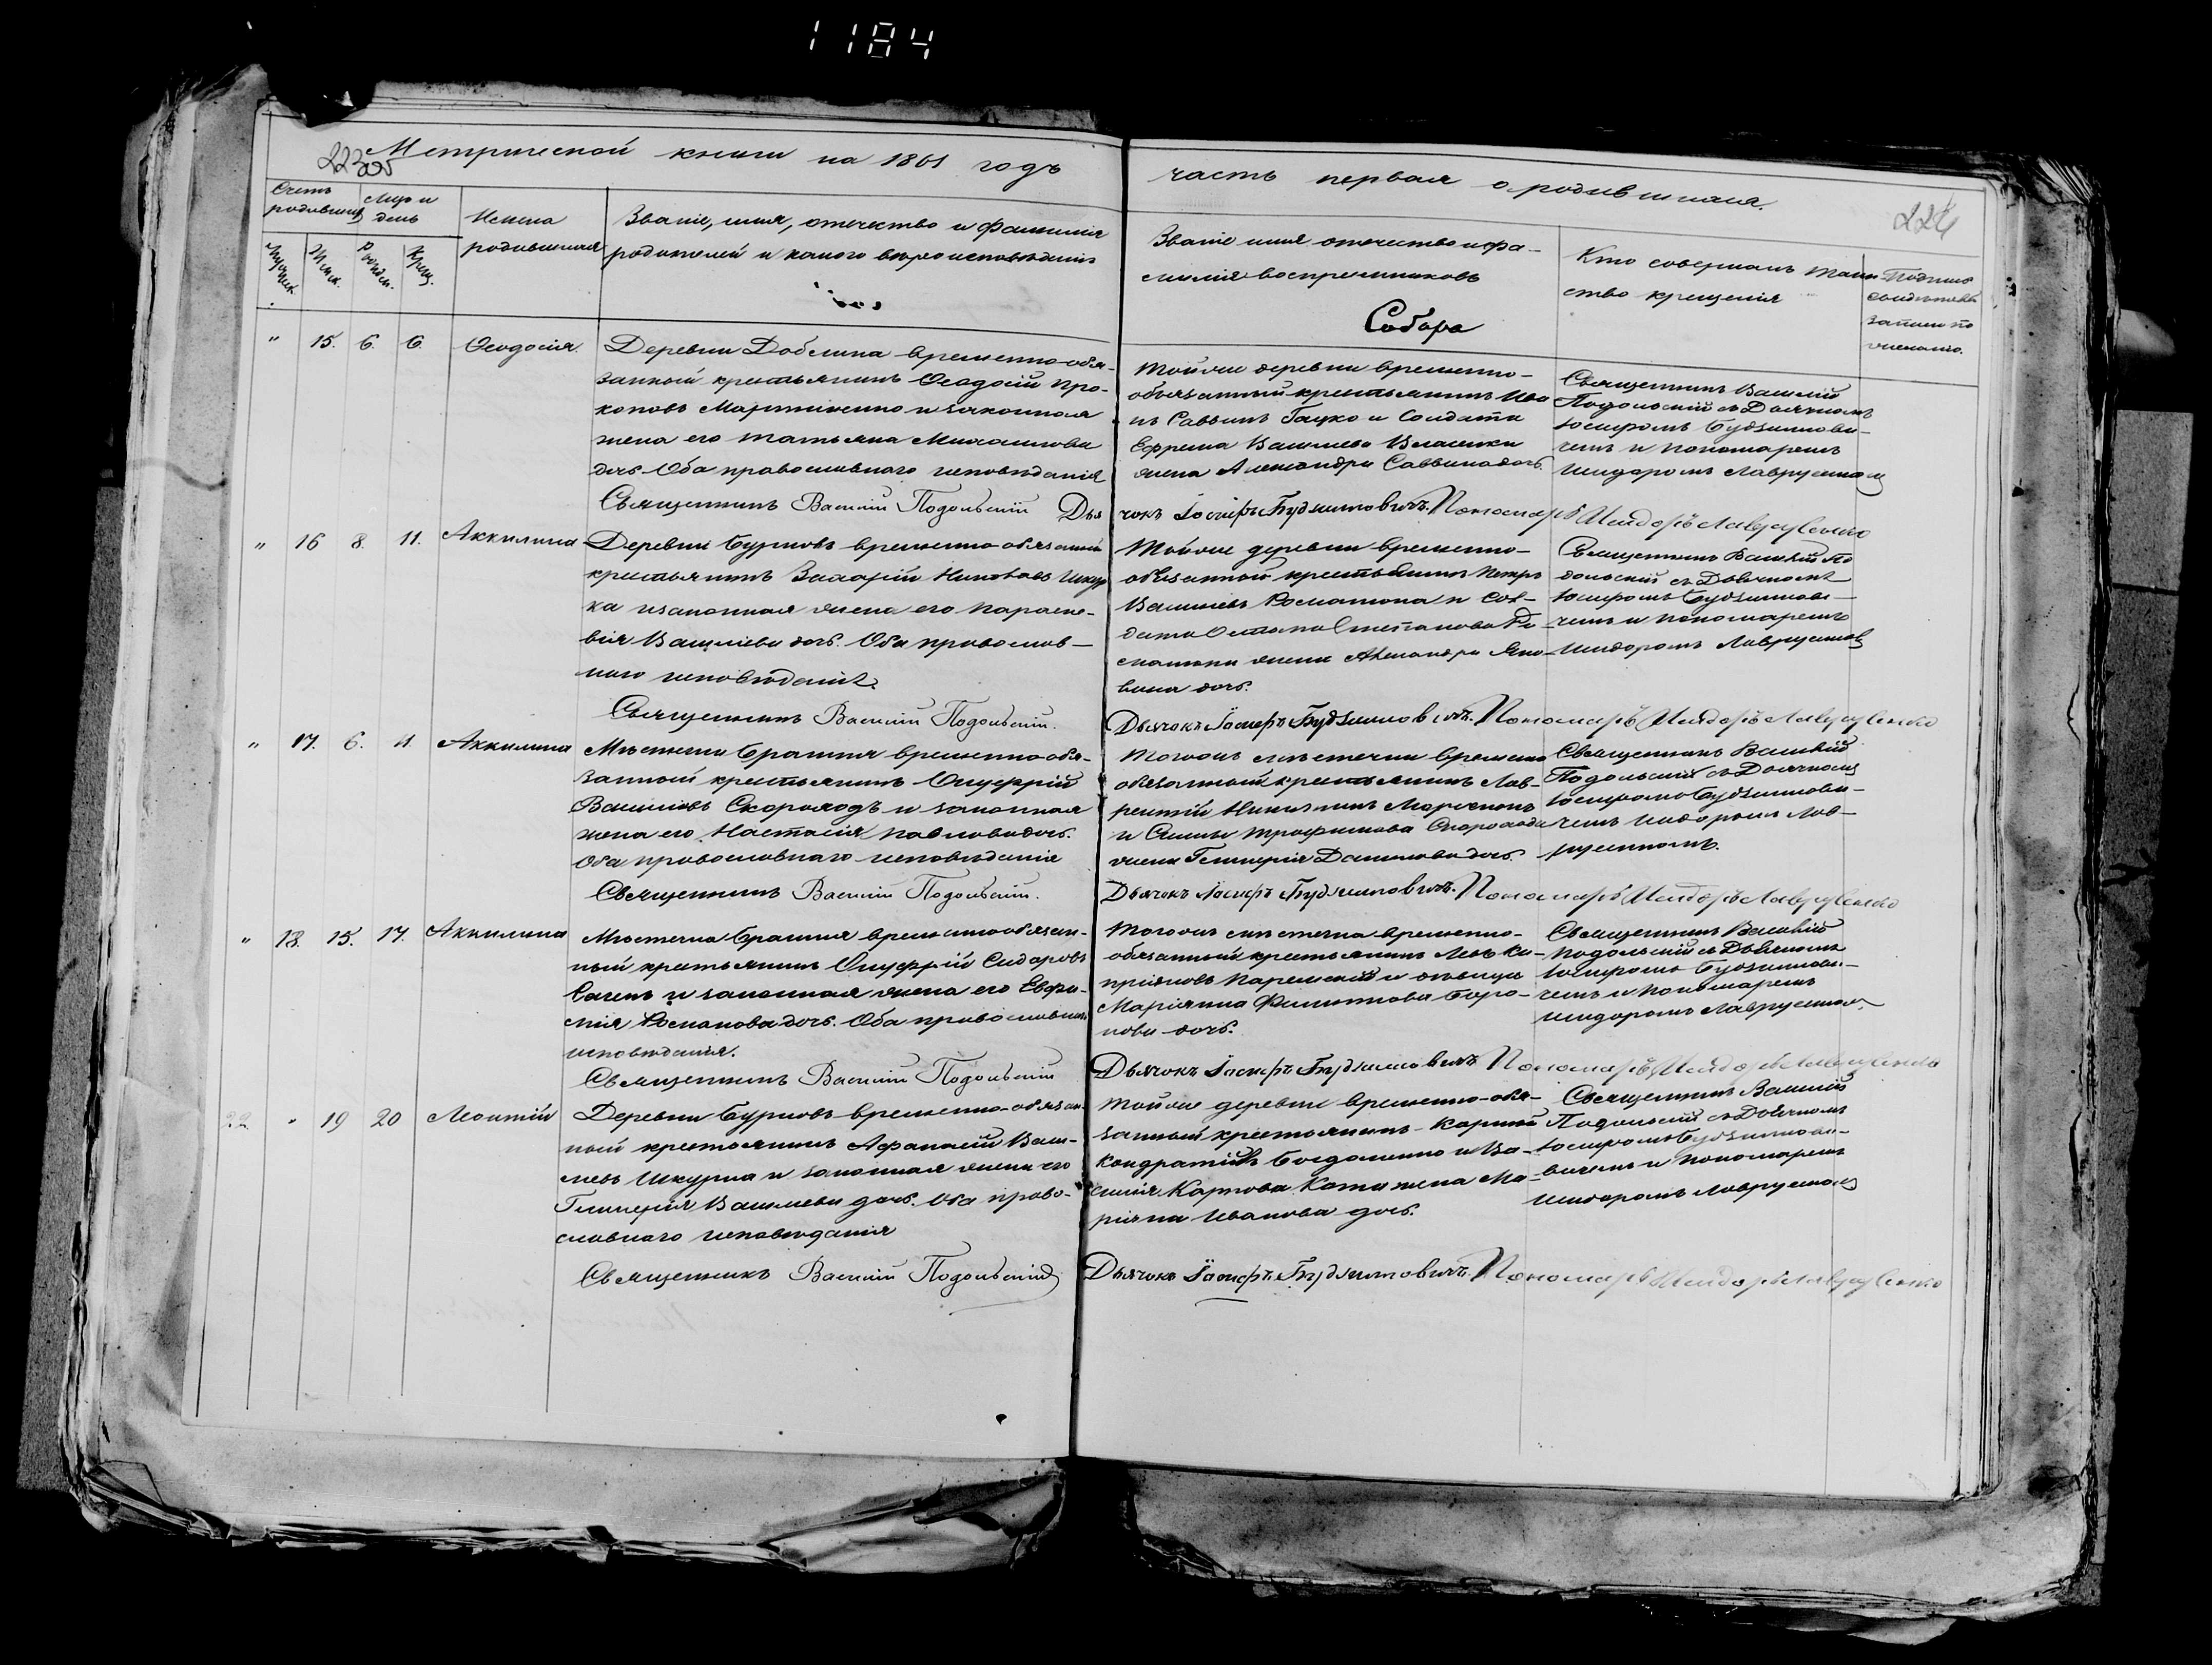 1184
Метрической книги на 1861 годъ
часть первая о родившихся.
223
224
Счетъ родившихся
Мѣс. и день
Имена родившихся
Званіе, имя, отечество и фамилія
родителей и какого вѣроисповѣданія
Званіе имя отчество и фа-
милія воспреемниковъ
Кто совершалъ таин-
ство крещенія
Подпись
свидѣтелей
записи по
желанію.
Собора
" 15. 6. 6. Ѳеодосія.
Деревни Доблина временно-обя-
занный крестьянинъ Ѳеодосій Про-
коповъ Мартиненко и законная
жена его Татьяна Михаилова
дочь. Оба православнаго исповѣданія
Священникъ Василій Подольскій Дья
Тойже деревни временно-
обязанный крестьянинъ Ива
нъ Саввинъ Гацко и Солдата
Ефрема Василіева Власенки
жена Александра Саввина дочь.
чокъ Іосифъ Будзиловичъ. Пономарь Исидоръ Лаврусенко
Священникъ Василій
Подольскій съ Дьячкомъ
Іосифомъ Будзилови-
чемъ и пономаремъ
Исидоромъ Лаврусенком
" 16 8. 11. Аккилина
Деревни Бурковъ временно-обязанный
крестьянинъ Захарій Шкур
ка и законная жена его Параске-
вія Василіева дочь. Оба православ-
наго исповѣданія.
Священникъ Василій Подольскій.
Тойже деревни временно-
обязанной крестьянинъ Петръ
Василіевъ и Сол-
дата Остапа Степанова
жена Александра Яко-
влева дочь.
Дьячокъ Іосифъ Будзиловичъ. Пономарь Исидоръ Лаврусенко
Священникъ Василій По
дольскій съ Дьячкомъ
Іосифомъ Будзилови-
чемъ и пономаремъ
Исидоромъ Лаврусенком
" 17. 6. 11. Аккилина
Мѣстечка Брагиня временно-обя-
занный крестьянинъ Онуфрій
Василіовъ Скороходъ и законная
жена его Настасія Павлова дочь.
Оба православнаго исповѣданія
Священникъ Василій Подольскій.
Тогожъ мѣстечка временно
обязанный крестьянинъ Лав-
рентій
и Трофимова Скорохода
жена Гликерія Данилова дочь.
Дьячокъ Іосифъ Будзиловичъ. Пономарь Исидоръ Лаврусенко
Священникъ Василій
Подольскій съ Дьячкомъ
Іосифомъ Будзилови-
чемъ Исидоромъ Лав-
русенкомъ.
" 18. 15. 17. Аккилина
Мѣстечка Брагиня временно обязан-
ный крестьянинъ Онуфрій Сидоровъ
и законная жена его Евфи-
мія Романова дочь. Оба православнаго
исповѣданія.
Священникъ Василій Подольскій
Тогожъ мѣстечка временно-
обязанный крестьянинъ Левъ Ки-
пріяновъ и дѣвица
Маріянна Филиппова
нова дочь.
Дьячокъ Іосифъ Будзиловичъ Пономарь Исидоръ Лаврусенко
Священникъ Василій
Подольскій съ Дьячкомъ
Іосифомъ Будзилови-
чемъ и пономаремъ
Исидоромъ Лаврусенком
22 " 19 20 Леонтій
Деревни Бурковъ временно-обязан-
ный крестьянинъ Афанасій Васи-
лiевъ Шкурка и законная жена его
Гликерія Василіева дочь. Оба право-
славнаго исповѣданія
Священникъ Василій Подольскій
Тойже деревни временно-обя-
занный крестьянинъ
Кондратіевъ Богданенко и Ва-
силія Карпова жена Ма-
ріяна Иванова дочь.
Дьячокъ Іосифъ Будзиловичъ Пономарь Исидоръ Лаврусенко
Священникъ Василій
Подольскій съ Дьячкомъ
Іосифомъ Будзилови-
вичемъ и пономаремъ
Исидоромъ Лаврусенком